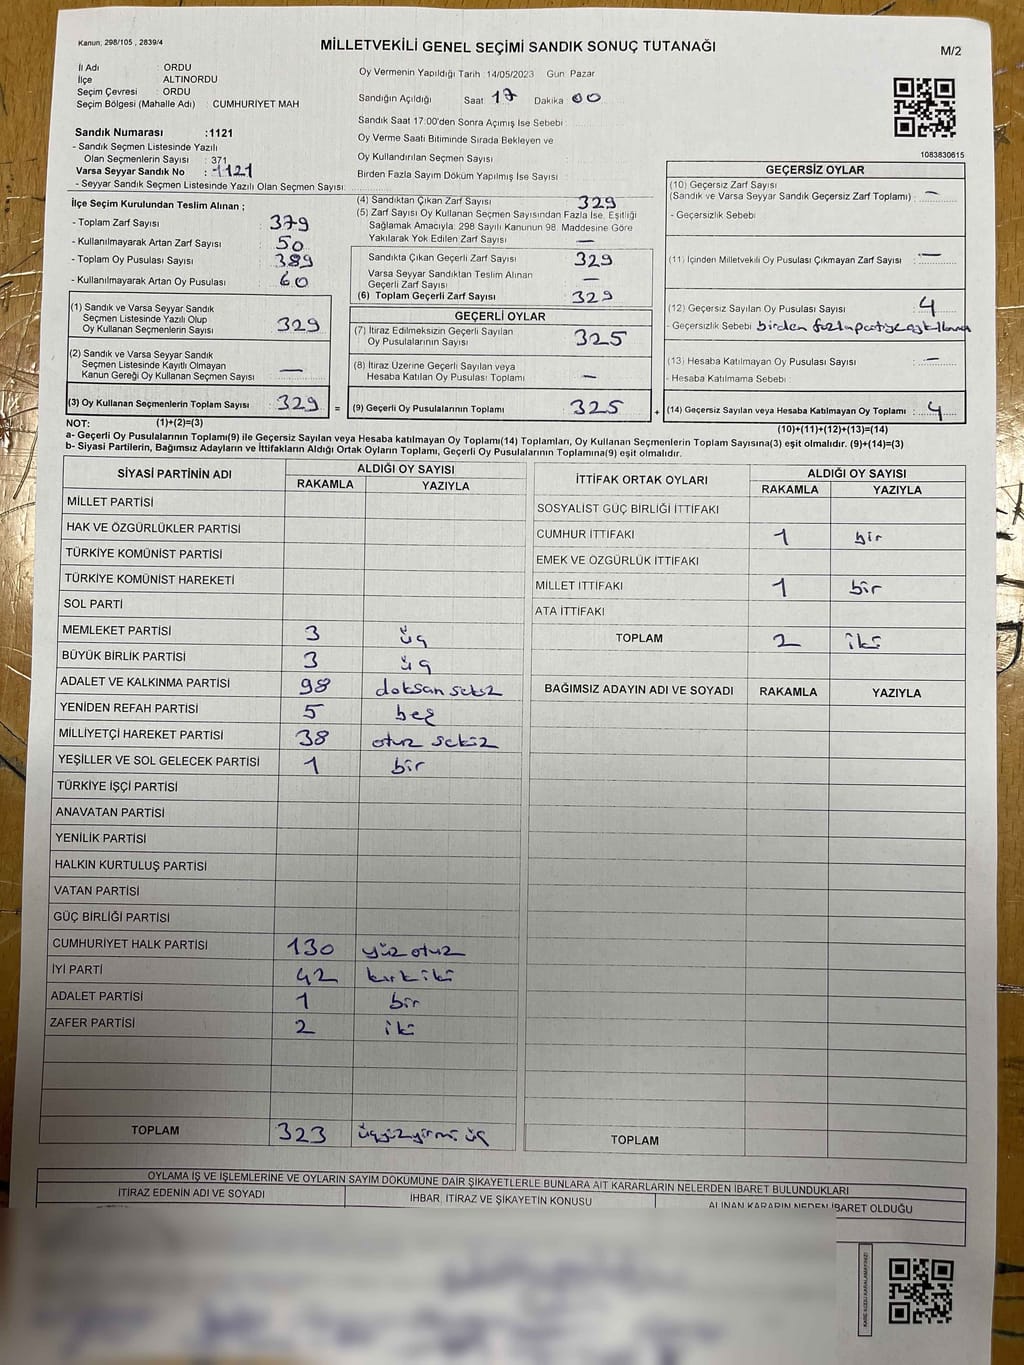 Kanun; 298/105 , 2839/4
MİLLETVEKİLİ GENEL SEÇİMİ SANDIK SONUÇ TUTANAĞI
M/2
İl Adı : ORDU
İlçe : ALTINORDU
Seçim Çevresi : ORDU
Seçim Bölgesi (Mahalle Adı) : CUMHURİYET MAH
Oy Vermenin Yapıldığı Tarih : 14/05/2023 Gün: Pazar
Sandığın Açıldığı Saat 17 Dakika 00
Sandık Saat 17:00'den Sonra Açımış İse Sebebi :
Oy Verme Saati Bitiminde Sırada Bekleyen ve
Oy Kullandırılan Seçmen Sayısı
Birden Fazla Sayım Döküm Yapılmış İse Sayısı :
Sandık Numarası :1121
- Sandık Seçmen Listesinde Yazılı
Olan Seçmenlerin Sayısı : 371
Varsa Seyyar Sandık No : -1121
- Seyyar Sandık Seçmen Listesinde Yazılı Olan Seçmen Sayısı:
1083830615
İlçe Seçim Kurulundan Teslim Alınan ;
- Toplam Zarf Sayısı : 379
- Kullanılmayarak Artan Zarf Sayısı : 50
- Toplam Oy Pusulası Sayısı : 389
- Kullanılmayarak Artan Oy Pusulası : 60
(1) Sandık ve Varsa Seyyar Sandık
Seçmen Listesinde Yazılı Olup
Oy Kullanan Seçmenlerin Sayısı : 329
(2) Sandık ve Varsa Seyyar Sandık
Seçmen Listesinde Kayıtlı Olmayan
Kanun Gereği Oy Kullanan Seçmen Sayısı : —
(3) Oy Kullanan Seçmenlerin Toplam Sayısı : 329 =
(1)+(2)=(3)
(4) Sandıktan Çıkan Zarf Sayısı : 329
(5) Zarf Sayısı Oy Kullanan Seçmen Sayısından Fazla İse, Eşitliği
Sağlamak Amacıyla; 298 Sayılı Kanunun 98. Maddesine Göre
Yakılarak Yok Edilen Zarf Sayısı : —
Sandıkta Çıkan Geçerli Zarf Sayısı : 329
Varsa Seyyar Sandıktan Teslim Alınan
Geçerli Zarf Sayısı : —
(6) Toplam Geçerli Zarf Sayısı : 329
GEÇERLİ OYLAR
(7) İtiraz Edilmeksizin Geçerli Sayılan
Oy Pusulalarının Sayısı : 325
(8) İtiraz Üzerine Geçerli Sayılan veya
Hesaba Katılan Oy Pusulası Toplamı : —
(9) Geçerli Oy Pusulalarının Toplamı : 325 +
GEÇERSİZ OYLAR
(10) Geçersiz Zarf Sayısı
(Sandık ve Varsa Seyyar Sandık Geçersiz Zarf Toplamı) : —
- Geçersizlik Sebebi :
(11) İçinden Milletvekili Oy Pusulası Çıkmayan Zarf Sayısı : —
(12) Geçersiz Sayılan Oy Pusulası Sayısı : 4
- Geçersizlik Sebebi : birden fazla partiye
(13) Hesaba Katılmayan Oy Pusulası Sayısı : —
- Hesaba Katılmama Sebebi :
(14) Geçersiz Sayılan veya Hesaba Katılmayan Oy Toplamı : 4
(10)+(11)+(12)+(13)=(14)
NOT:
a- Geçerli Oy Pusulalarının Toplamı(9) ile Geçersiz Sayılan veya Hesaba katılmayan Oy Toplamı(14) Toplamları, Oy Kullanan Seçmenlerin Toplam Sayısına(3) eşit olmalıdır. (9)+(14)=(3)
b- Siyasi Partilerin, Bağımsız Adayların ve İttifakların Aldığı Ortak Oyların Toplamı, Geçerli Oy Pusulalarının Toplamına(9) eşit olmalıdır.
SİYASİ PARTİNİN ADI ALDIĞI OY SAYISI
RAKAMLA YAZIYLA
MİLLET PARTİSİ
HAK VE ÖZGÜRLÜKLER PARTİSİ
TÜRKİYE KOMÜNİST PARTİSİ
TÜRKİYE KOMÜNİST HAREKETİ
SOL PARTİ
MEMLEKET PARTİSİ 3 üç
BÜYÜK BİRLİK PARTİSİ 3 üç
ADALET VE KALKINMA PARTİSİ 98 doksan sekiz
YENİDEN REFAH PARTİSİ 5 beş
MİLLİYETÇİ HAREKET PARTİSİ 38 otuz sekiz
YEŞİLLER VE SOL GELECEK PARTİSİ 1 bir
TÜRKİYE İŞÇİ PARTİSİ
ANAVATAN PARTİSİ
YENİLİK PARTİSİ
HALKIN KURTULUŞ PARTİSİ
VATAN PARTİSİ
GÜÇ BİRLİĞİ PARTİSİ
CUMHURİYET HALK PARTİSİ 130 yüz otuz
İYİ PARTİ 42 kırk iki
ADALET PARTİSİ 1 bir
ZAFER PARTİSİ 2 iki
TOPLAM 323 üçyüzyirmi üç
İTTİFAK ORTAK OYLARI ALDIĞI OY SAYISI
RAKAMLA YAZIYLA
SOSYALİST GÜÇ BİRLİĞİ İTTİFAKI
CUMHUR İTTİFAKI 1 bir
EMEK VE ÖZGÜRLÜK İTTİFAKI
MİLLET İTTİFAKI 1 bir
ATA İTTİFAKI
TOPLAM 2 iki
BAĞIMSIZ ADAYIN ADI VE SOYADI RAKAMLA YAZIYLA
TOPLAM
OYLAMA İŞ VE İŞLEMLERİNE VE OYLARIN SAYIM DÖKÜMÜNE DAİR ŞİKAYETLERLE BUNLARA AİT KARARLARIN NELERDEN İBARET BULUNDUKLARI
İTİRAZ EDENİN ADI VE SOYADI İHBAR, İTİRAZ VE ŞİKAYETİN KONUSU ALINAN KARARIN NEDEN İBARET OLDUĞU
KARE KODU KARALAMAYINIZ!